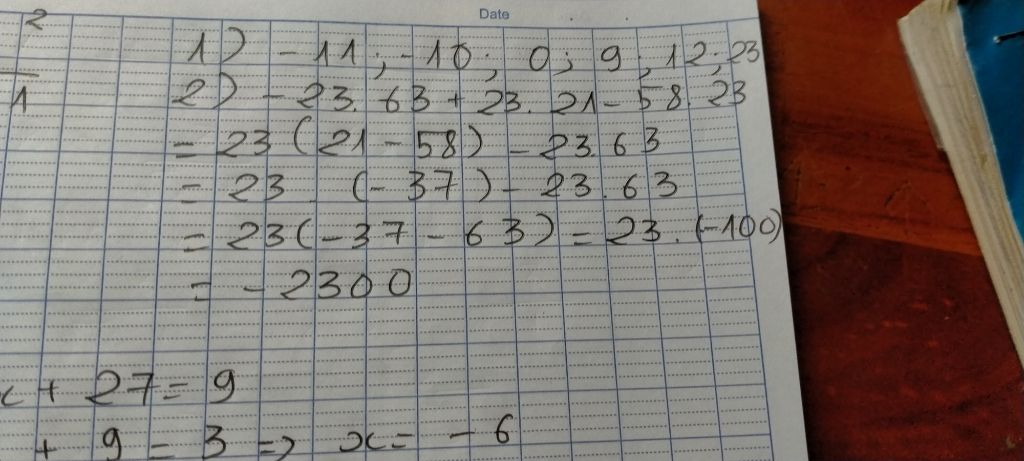 Date
2
1) -11 ; -10 ; 0 ; 9 ; 12 ; 23
1
2) - 23. 63 + 23. 21 - 58. 23
= 23 (21 - 58) - 23.63
= 23 . (-37) - 23.63
= 23(-37 - 63) = 23. (-100)
= - 2300
x + 27 = 9
+ 9 = 3 => x = - 6